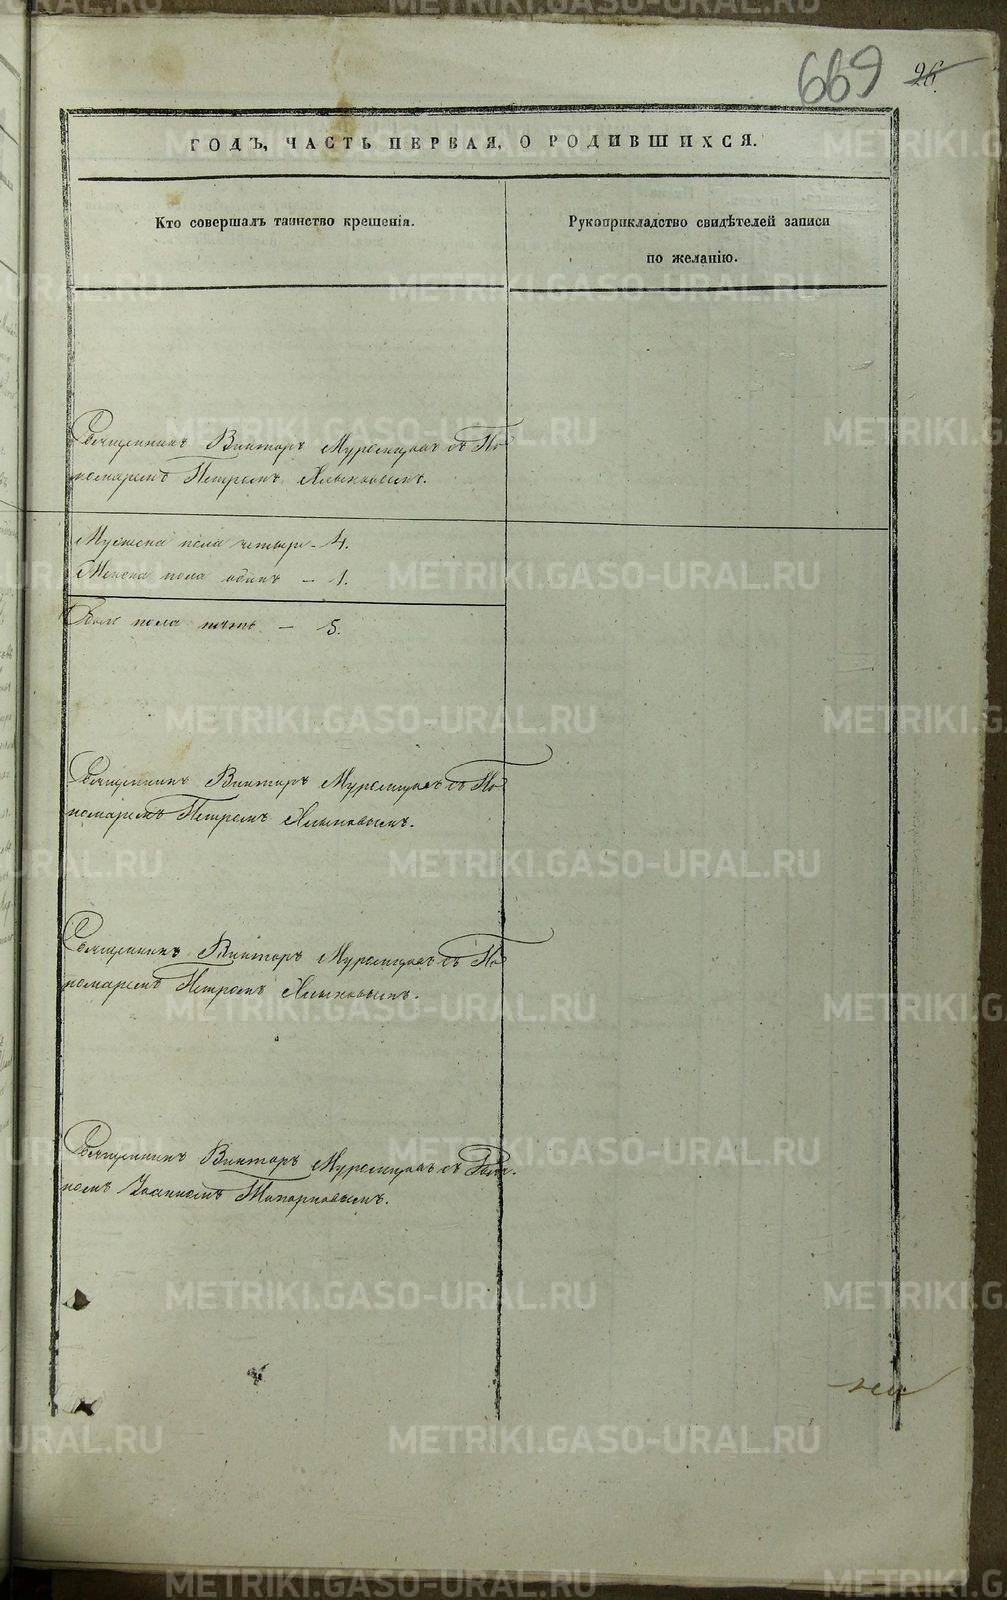 669 26.
ГОДЪ, ЧАСТЬ ПЕРВАЯ, О РОДИВШИХСЯ.
Кто совершалъ таинство крещенія.
Рукоприкладство свидѣтелей записи
по желанію.
Священникъ Викторъ Муромцовъ съ По
номаремъ Петромъ Хлынковымъ.
Мужеска пола четыре - 4.
Женска пола одинъ - 1.
Обоего пола пять - 5.
Священникъ Викторъ Муромцовъ съ По
номаремъ Петромъ Хлынковымъ.
Священникъ Викторъ Муромцовъ съ По
номаремъ Петромъ Хлынковымъ.
Священникъ Викторъ Муромцовъ съ
Іоанномъ Топорковымъ.
METRIKI.GASO-URAL.RU